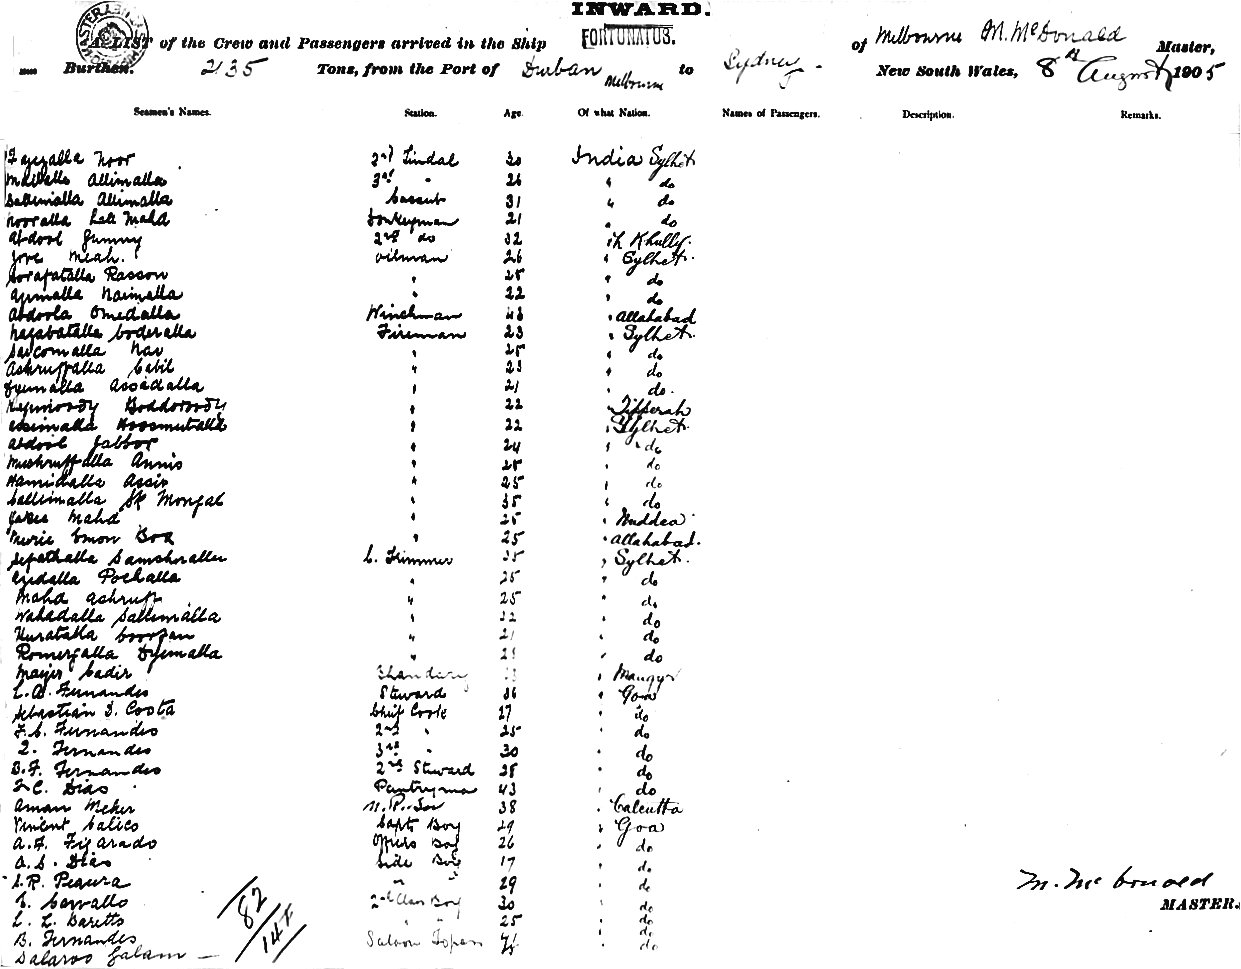 INWARD.
A LIST of the Crew and Passengers arrived in the Ship FORTUNATUS. of Melbourne M. McDonald Master,
Burthen. 2135 Tons, from the Port of Durban Melbourne to Sydney New South Wales, 8th August 1905
Seamen's Names. Station. Age. Of what Nation. Names of Passengers. Description. Remarks.
Noor 2nd Tindal 30 India Sylhet
Allimalla 3rd " 26 " do
Sallimalla Allimalla Cassub 31 " do
Nooralla Late Mahd Donkeyman 21 " do
Abdool Gunny 2nd do 32 Khully
Jove Meah. Oilman 26 " Sylhet.
Sorafatalla Rasson " 25 " do
Ajimalla Naimalla " 22 " do
Abdoola Omedalla Winchman 43 " Allahabad
Nazabatalla Coderalla Fireman 23 " Sylhet.
Nav " 25 " do
Ashruffalla Cabil " 23 " do
Assadalla " 21 " do.
Boddoroody " 22 Tipperah
Assimalla Hossmutalla " 22 Sylhet.
Abdool Jabbor " 24 " do
Mushruffalla Annis " 25 " do
Hamidalla Assir " 25 " do
Callimalla Sk Mongal " 35 " do
Mahd " 25 " Nuddea
Box " 25 " Allahabad.
Samsheralla C. Trimmer 35 " Sylhet.
Pochalla " 25 " do
Mahd Ashruff " 25 " do
Wahadalla Sallimalla " 32 " do
" 21 " do
" 21 " do
Cadir Bhandary
L.A. Fernandes Steward 36 " Goa
Sebastian D. Costa Chief Cook 27 " do
F.C. Fernandes 2nd " 25 " do
Z. Fernandes 3rd " 30 " do
B.F. Fernandes 2nd Steward 38 " do
C. Dias Pantryman 43 " do
Aman 38 " Calcutta
Vincent Calico Capts Boy 29 " Goa
A.F. Figarado Officers Boy 26 " do
A.S. Dias Side Boy 17 " do
S.R. " 29 " do
Carvallo 2nd Class Boy 30 " do
L. L. Baretto " " 25 " do
B. Fernandes Saloon Topas " do
Salaroo Galam
82
147
M. McDonald
MASTER.